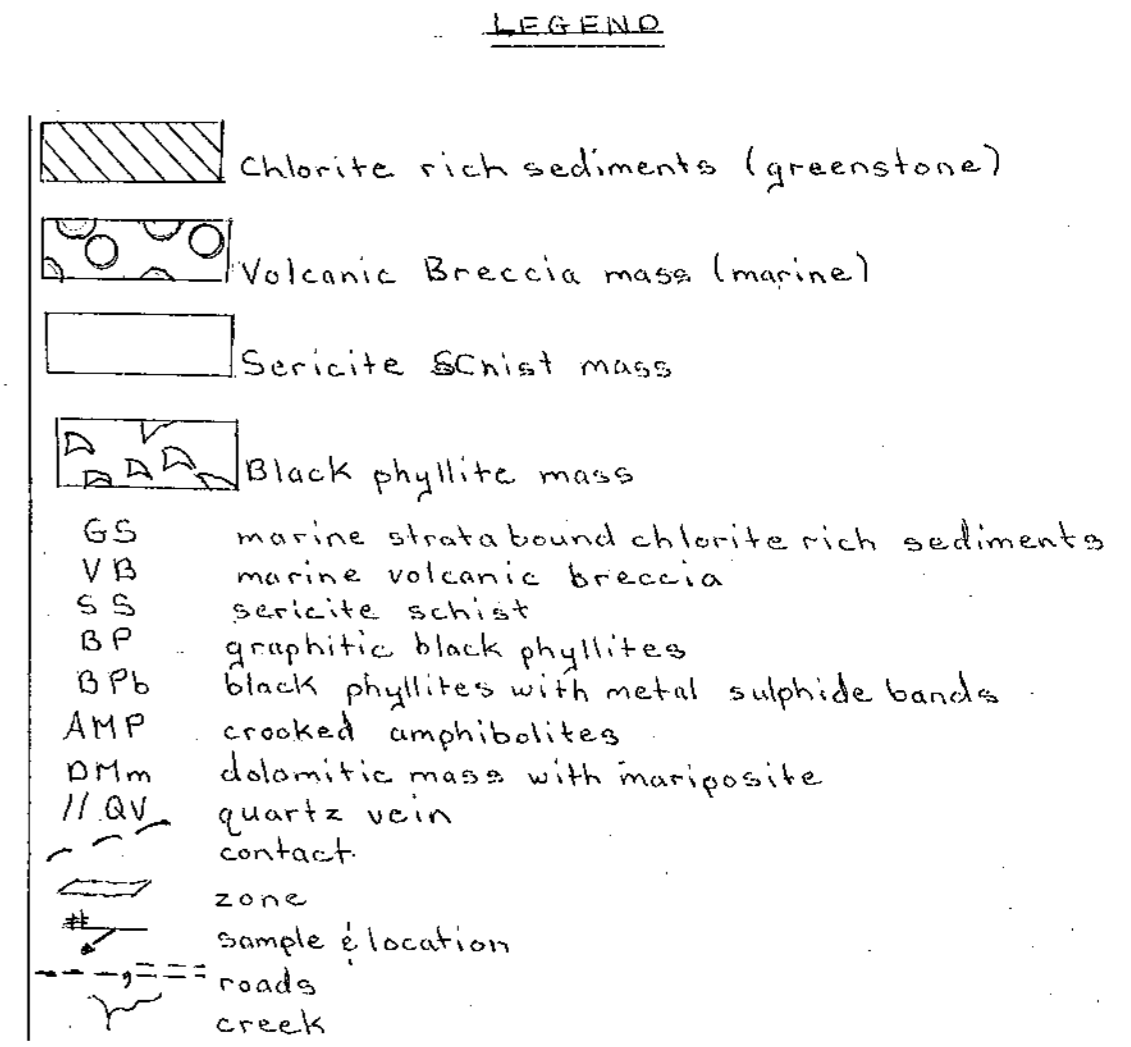 LEGEND
Chlorite rich sediments (greenstone)
Volcanic Breccia mass (marine)
Sericite SChist mass
Black phyllite mass
GS marine strata bound chlorite rich sediments
VB marine volcanic breccia
SS sericite schist
BP graphitic black phyllites
BPb black phyllites with metal sulphide bands
AMP crooked amphibolites
DMm dolomitic mass with mariposite
// QV quartz vein
contact
zone
# sample & location
roads
creek